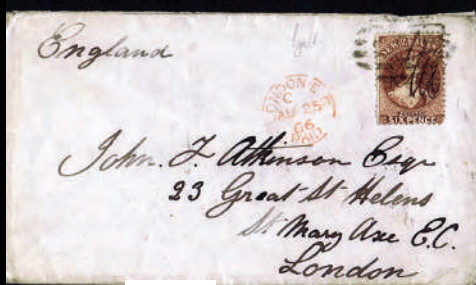 England
NEW ZEALAND
SIX PENCE
LONDON E.C
C
25
66
PAID
John. F. Atkinson Esqr
23 Great St Helens
St Mary Axe E.C.
London